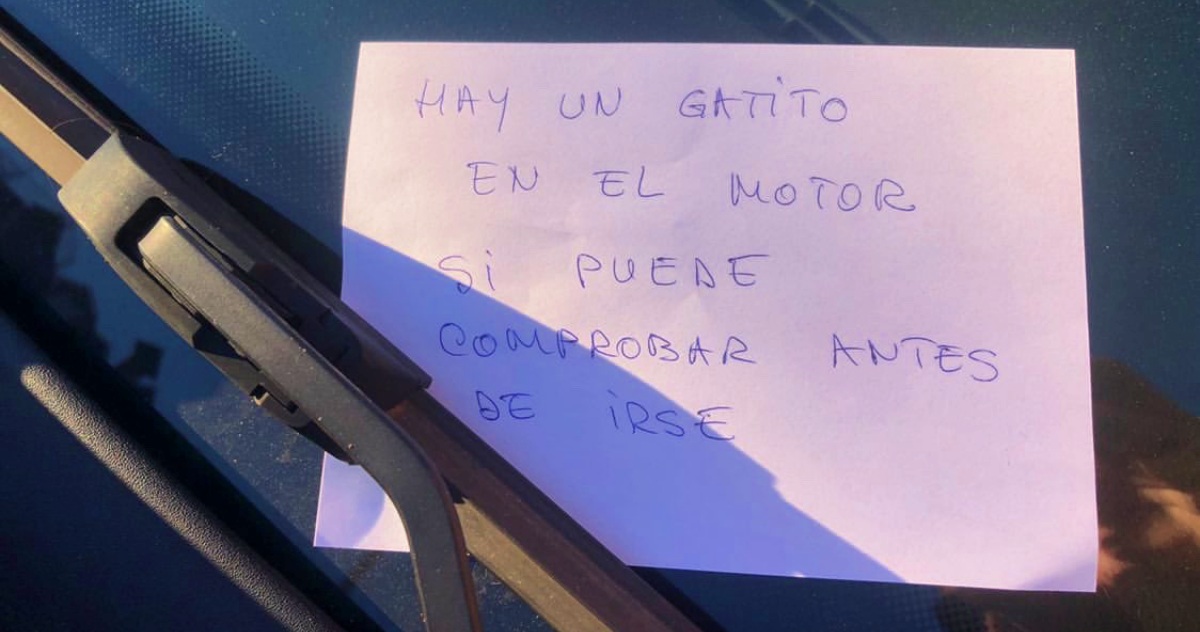 HAY UN GATITO
EN EL MOTOR
Si PUEDE
COMPROBAR ANTES
DE iRSE